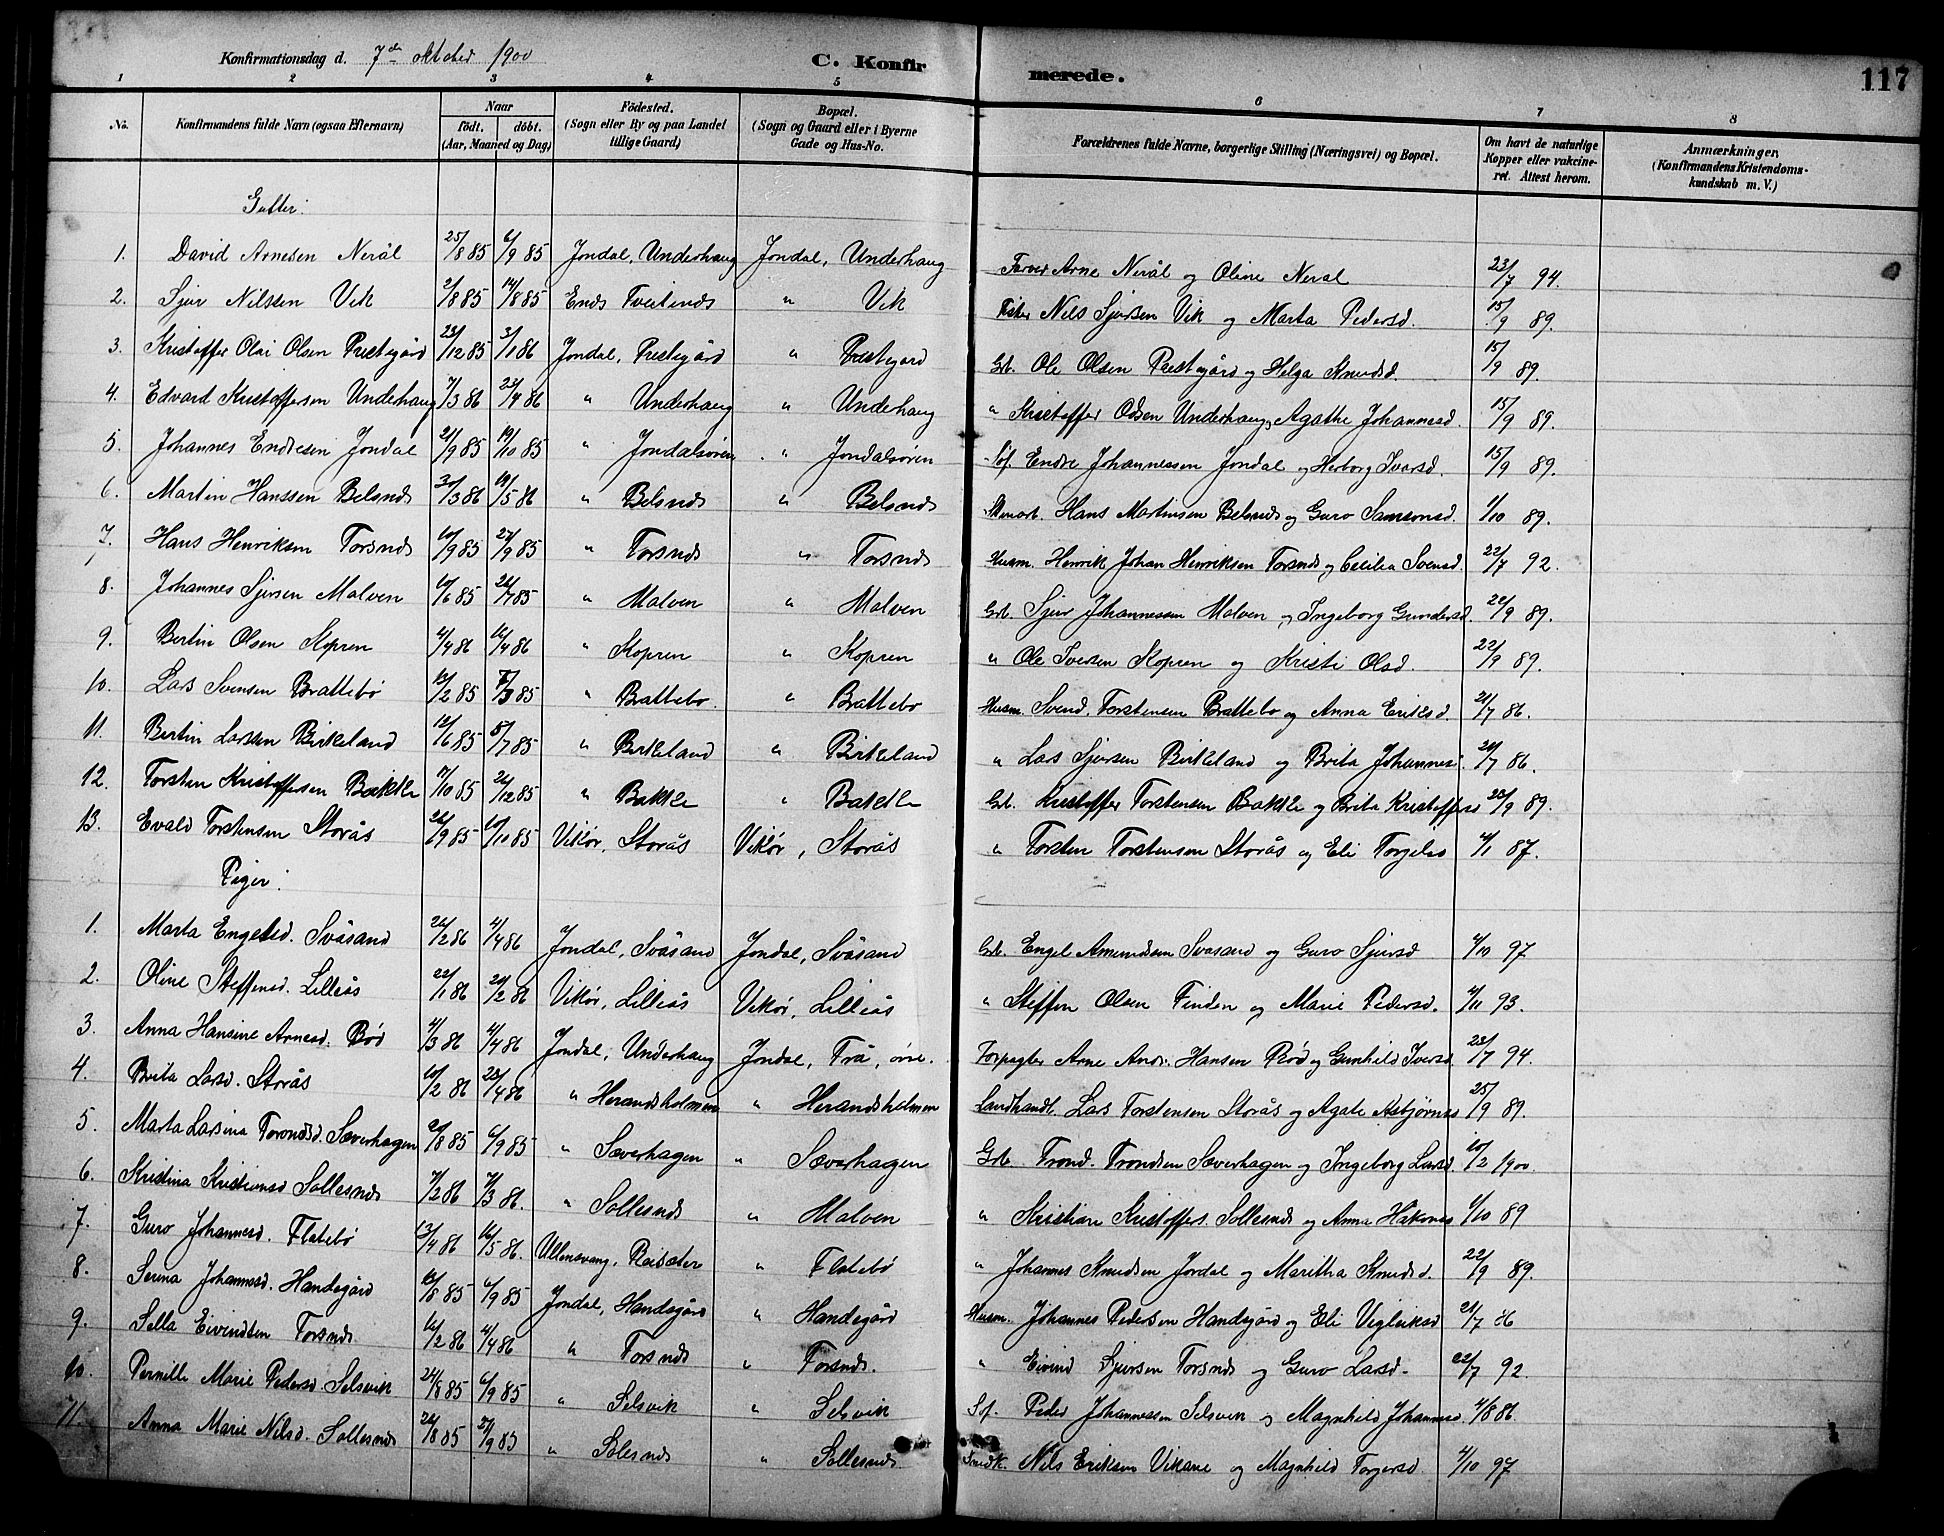 Konfirmationsdag d. 7de oktober 1900 C. Konfirmerede. 117
1 2 3 4 5 6 7 8
No. Konfirmandens fulde Navn (ogsaa Efternavn) Naar födt. döbt. (Aar, Maaned og Dag) Födested. (Sogn eller By og paa Landet tillige Gaard) Bopæl. (Sogn og Gaard eller i Byerne Gade og Hus-No. Forældrenes fulde Navne, borgerlige Stilling (Næringsvei) og Bopæl. Om havt de naturlige Kopper eller vakcineret. Attest herom. Anmærkninger. (Konfirmandens Kristendomskundskab m. V.)
Gutter:
1. David Arnesen Nerål 25/8 85 6/9 85 Jondal, Underhaug Jondal, Underhaug Farver Arne Nerål og Oline Neral 23/7 94.
2. Sjur Nilssen Vik 2/8 85 14/8 85 Tveitnds " Vik Fisker Nils Sjursen Vik og Marta Pedersd. 15/9 89.
3. Kristoffer Olai Olsen Prestegård 23/12 85 3/1 86 Jondal, Prestegård " Prestegard Grb. Ole Olsen Prestegård og Helga Knudsd. 15/9 89.
4. Edvard Kristoffersen Underhaug 7/3 86 23/4 86 " Underhaug " Underhaug " Kristoffer Odsen Underhaug, Agathe Johannesd. 15/9 89.
5. Johannes Endresen Jondal 21/9 85 19/10 85 " Jondalsören " Jondalsören Sof. Endre Johannessen Jondal og Herborg Iversd. 15/9 89.
6. Martin Hanssen Belsnds /3 86 /5 86 " Belsnds " Belsnds Hans Martinsen Belsnds og Guro Samsonsd. 1/10 89.
7. Hans Henriksen Torsnds 10/9 85 27/9 85 " Torsnds " Torsnds Husm. Henrik Johan Henriksen Torsnds og Cecilia Svensd. 22/7 92.
8. Johannes Sjursen Malven 10/6 85 26/7 85 " Malven " Malven Grb. Sjur Johannessen Malven og Ingeborg Gundersd. 22/9 89.
9. Bertin Olsen Kopren 4/4 86 /4 86 " Kopren " Kopren " Ole Iversen Kopren og Kristi Olsd. 22/9 89.
10. Lars Svensen Brattebö /2 85 /3 85 " Brattebö. " Brattebö Husm. Svend Torstensen Brattebo og Anna Eriksd. 21/7 86.
11. Bertin Larssen Birkeland 12/6 85 5/7 85 " Birkeland " Birkeland " Lars Sjursen Birkeland og Brita Johannes. /7 86.
12. Torsten Kristoffersen Bakke /10 85 26/12 85 " Bakke " Bakke Grb. Kristoffer Torstensen Bakke og Brita Kristoffers /9 89.
13. Evald Torstensen Storås /9 85 /10 85 Vikör, Storås Vikör, Storås " Torsten Torstensen Storås og Eli Torgils 4/1 87.
Piger:
1. Marta Engelsd. Svåsand 26/2 86 4/4 86 Jondal, Svåsand Jondal, Svåsand Grb. Engel Amundsen Svasand og Guro Sjursd 4/10 97
2. Oline Steffensd. Lilleås 22/1 86 /2 86 Vikör, Lilleås Vikör, Lilleås " Steffen Olsen Finden og Marie Pedersd. 4/11 93.
3. Anna Hansine Arnesd. Röd 4/3 86 4/4 86 Jondal, Underhaug Jondal, Trå, övre. Forpagter Arne Andr. Hansen Röd og Gunhild Iversd. 23/7 94.
4. Brita Larsd. Storås 10/2 86 /4 86 " Herandsholmen " Herandsholmen Landhandl. Lars Torstensen Storås og Agate Asbjörns 25/9 89.
5. Marta Larsina Torondsd. Sæverhagen /8 85 6/9 85 " Sæverhagen " Sæverhagen Grb. Trond Trondsen Sæverhagen og Ingeborg Larsd. 10/2 1900
6. Kristina Kristiansd Sollesnds 7/2 86 7/3 86. " Sollesnds " Malven " Kristian Kristoffers. Sollesnds og Anna Håkons 1/10 89
7. Guro Johannesd. Flatebö 13/4 86 16/5 86. Ullensvang, Reisæter " Flatebö " Johannes Knudsen Jordal og Maritha Knudsd. 22/9 89.
8. Serina Johannesd. Handegård /8 85 6/9 85 Jondal, Handegård " Handegård Husm. Johannes Pedersen Handegård og Eli Vigleiksd 21/7 86
9. Sella Eivindsen Torsnds 16/2 86 4/4 86 " Torsnds " Torsnds. " Eivind Sjursen Torsnds og Guro Larsd. 22/7 92
10. Pernille Marie Pedersd. Selsvik 24/8 85 6/9 85 " Selsvik " Selsvik Sof. Peder Johannessen Selsvik og Magnhild Johannesd. 4/8 86
11. Anna Marie Nilsd. Sollesnds 26/8 85 27/9 85 " Solesnds " Sollesnds Snedk. Nils Eriksen Vikane og Magnhild Torgersd. 4/10 97